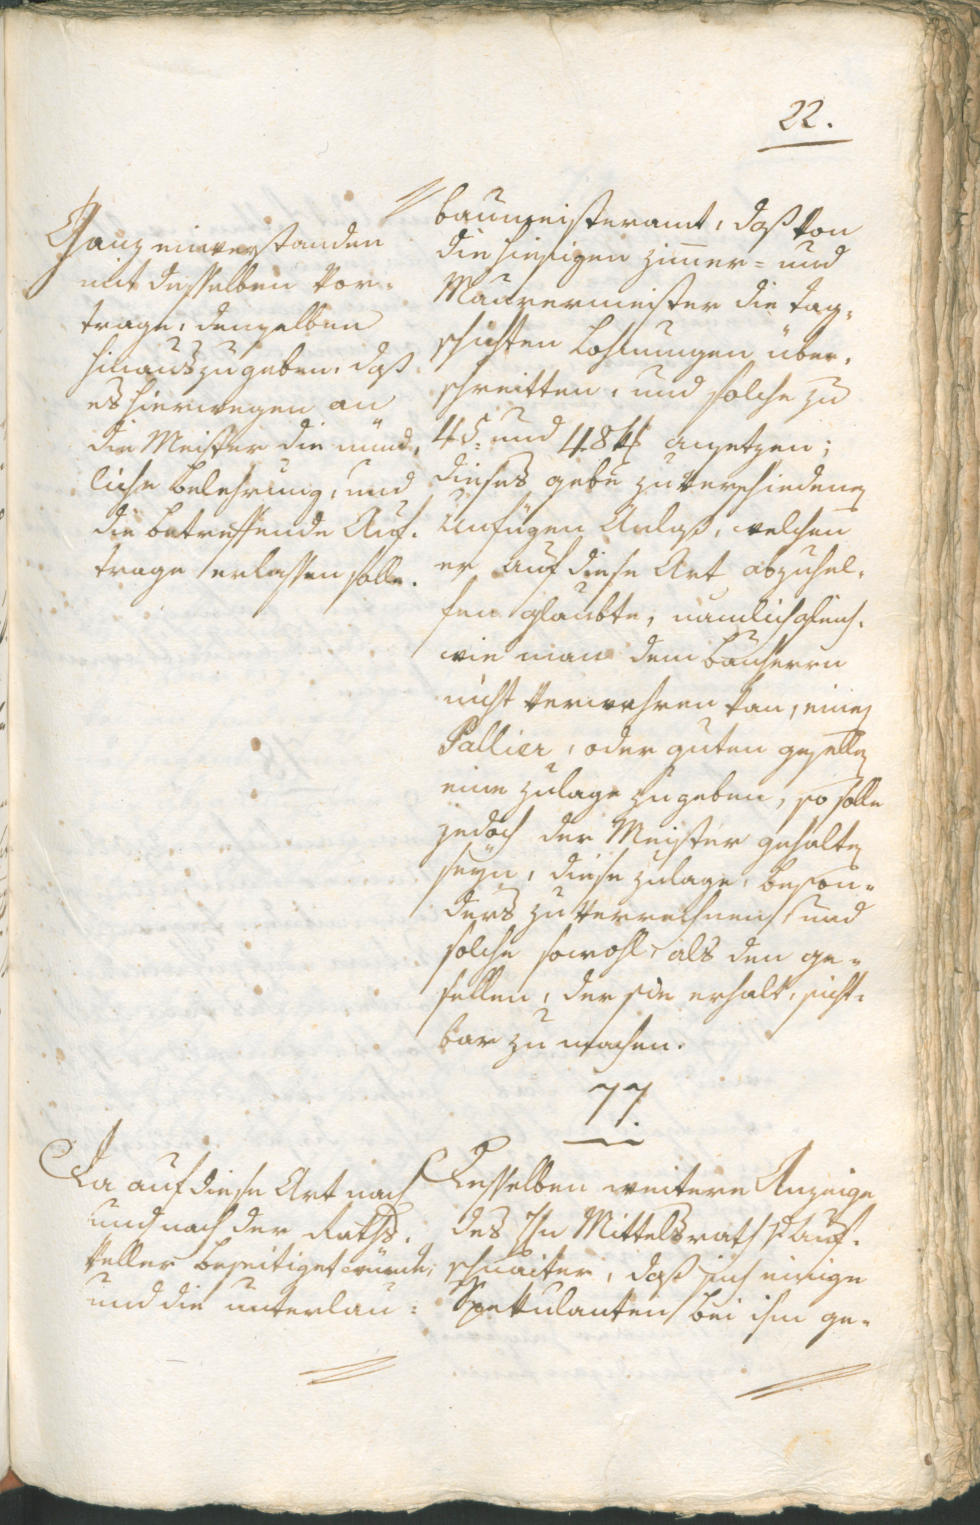 22.
Ganz einverstanden
mit desselben Vor-
trage, demselben
hinauszugeben, daß
es hierwegen an
die Meister die münd-
liche Belehrung, und
die betreffende Auf-
trage erlassen solle.
Baumeisteramt, daß von
die hiesigen Zimmer= und
Maurermeister die Tag-
schichten Löhnungen über-
schreitten, und solche zu
45. und 48 x ansetzen;
dieses gebe zu verschiedenen
Unfügen Anlaß, welchen
er auf diese Art abzuhel-
fen glaubte, nämlich gleich-
wie man dem Bauherrn
nicht verwehren kan, einen
Pallier, oder guten gesellen
eine Zulage zu geben, so solle
jedoch der Meister gehalten
seyn, diese Zulage, beson-
ders zu verrechnen, und
solche sowohl, als den ge-
sellen, der sie erhalt, sicht-
bar zu machen.
77.
Da auf diese Art nach
und nach der Raths-
keller beseitiget würde,
und die unterlau=
Desselben weitere Anzeige
des Hn Mittelsraths Auf-
schnaiter, daß sich einige
Spekulanten bei ihm ge-